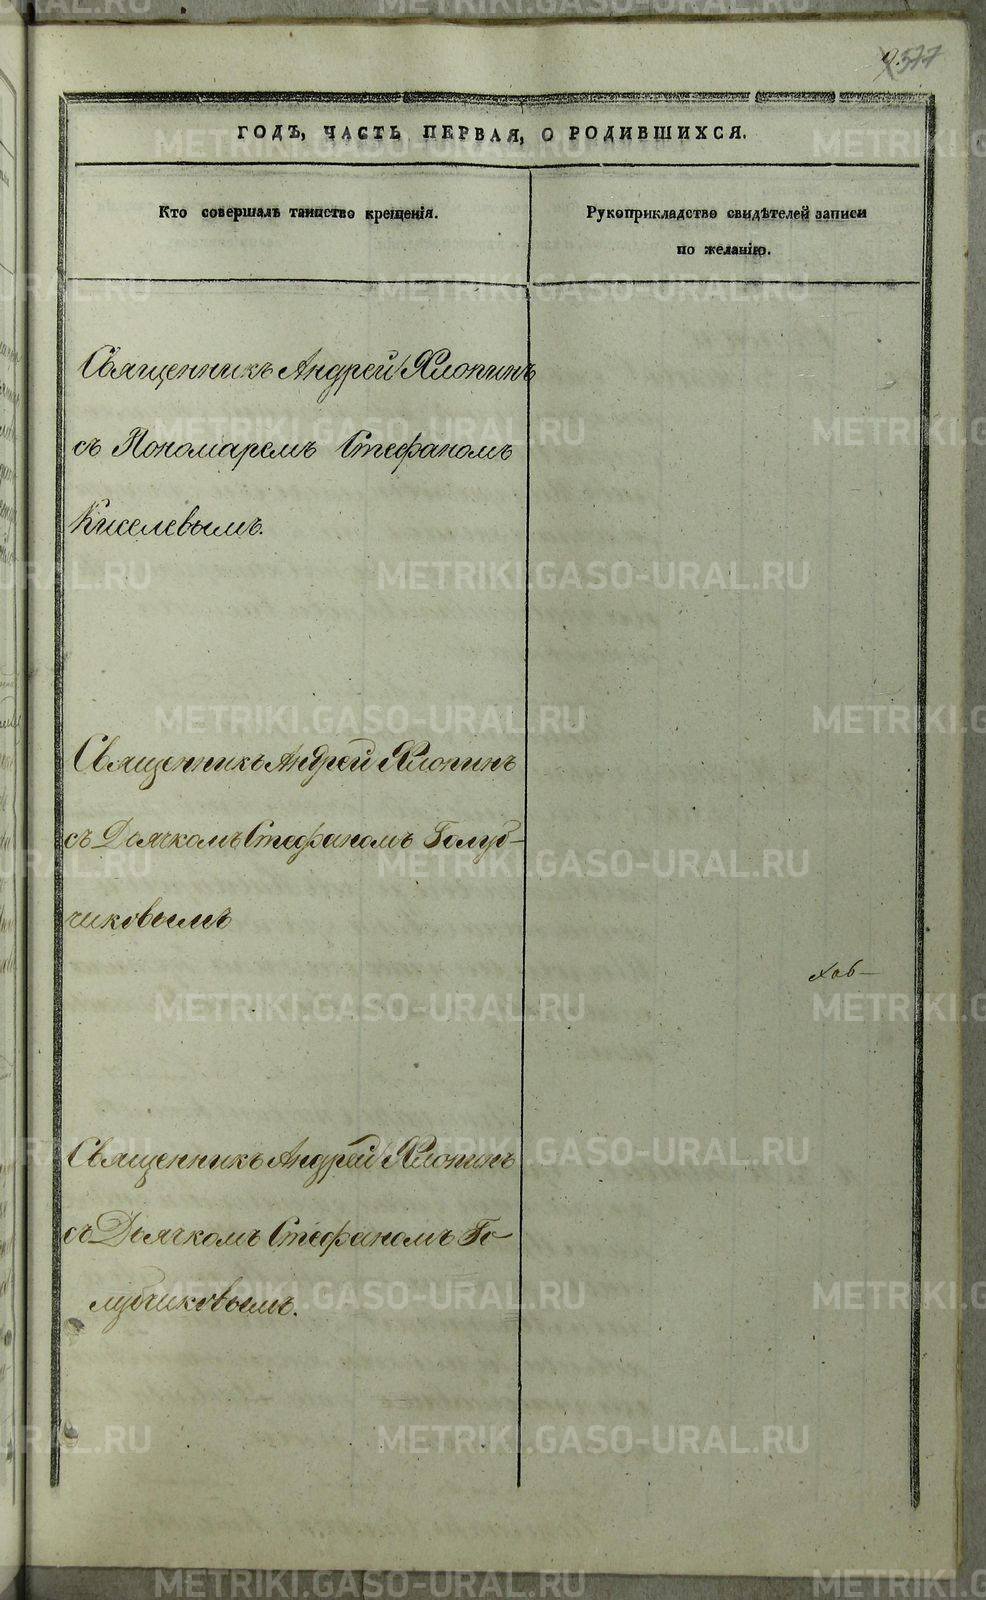 9.
577
ГОДЪ, ЧАСТЬ ПЕРВАЯ, О РОДИВШИХСЯ.
Кто совершалъ таинство крещенія.
Рукоприкладство свидѣтелей записи
по желанію.
Священникъ Андрей Хлопинъ
съ Пономаремъ Стефаномъ
Киселевымъ.
Священникъ Андрей Хлопинъ
съ Дьячкомъ Стефаномъ Голуб-
чиковымъ
Священникъ Андрей Хлопинъ
съ Дьячкомъ Стефаномъ Го-
лубчиковымъ.
METRIKI.GASO-URAL.RU